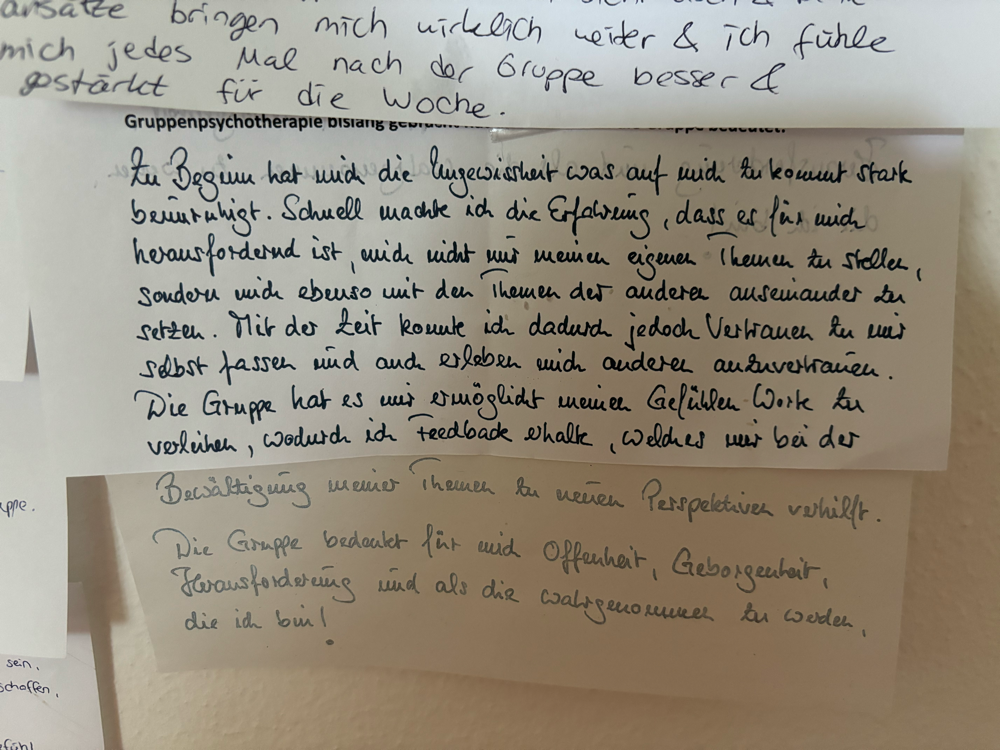 ansätze bringen mich wirklich weiter & ich fühle
mich jedes Mal nach der Gruppe besser &
gestärkt für die Woche.
Gruppenpsychotherapie bislang
bedeutet.
Zu Beginn hat mich die Ungewissheit was auf mich zu kommt stark
beunruhigt. Schnell machte ich die Erfahrung, dass es für mich
herausfordernd ist, mich nicht nur meinen eigenen Themen zu stellen,
sondern mich ebenso mit den Themen der anderen auseinander zu
setzen. Mit der Zeit konnte ich dadurch jedoch Vertrauen zu mir
selbst fassen und auch erleben mich anderen anzuvertrauen.
Die Gruppe hat es mir ermöglicht meinen Gefühlen Worte zu
verleihen, wodurch ich Feedback erhalte, welches mir bei der
Bewältigung meiner Themen zu neuen Perspektiven verhilft.
Die Gruppe bedeutet für mich Offenheit, Geborgenheit,
Herausforderung und als die wahrgenommen zu werden,
die ich bin!
uppe.
sein,
schaffen,